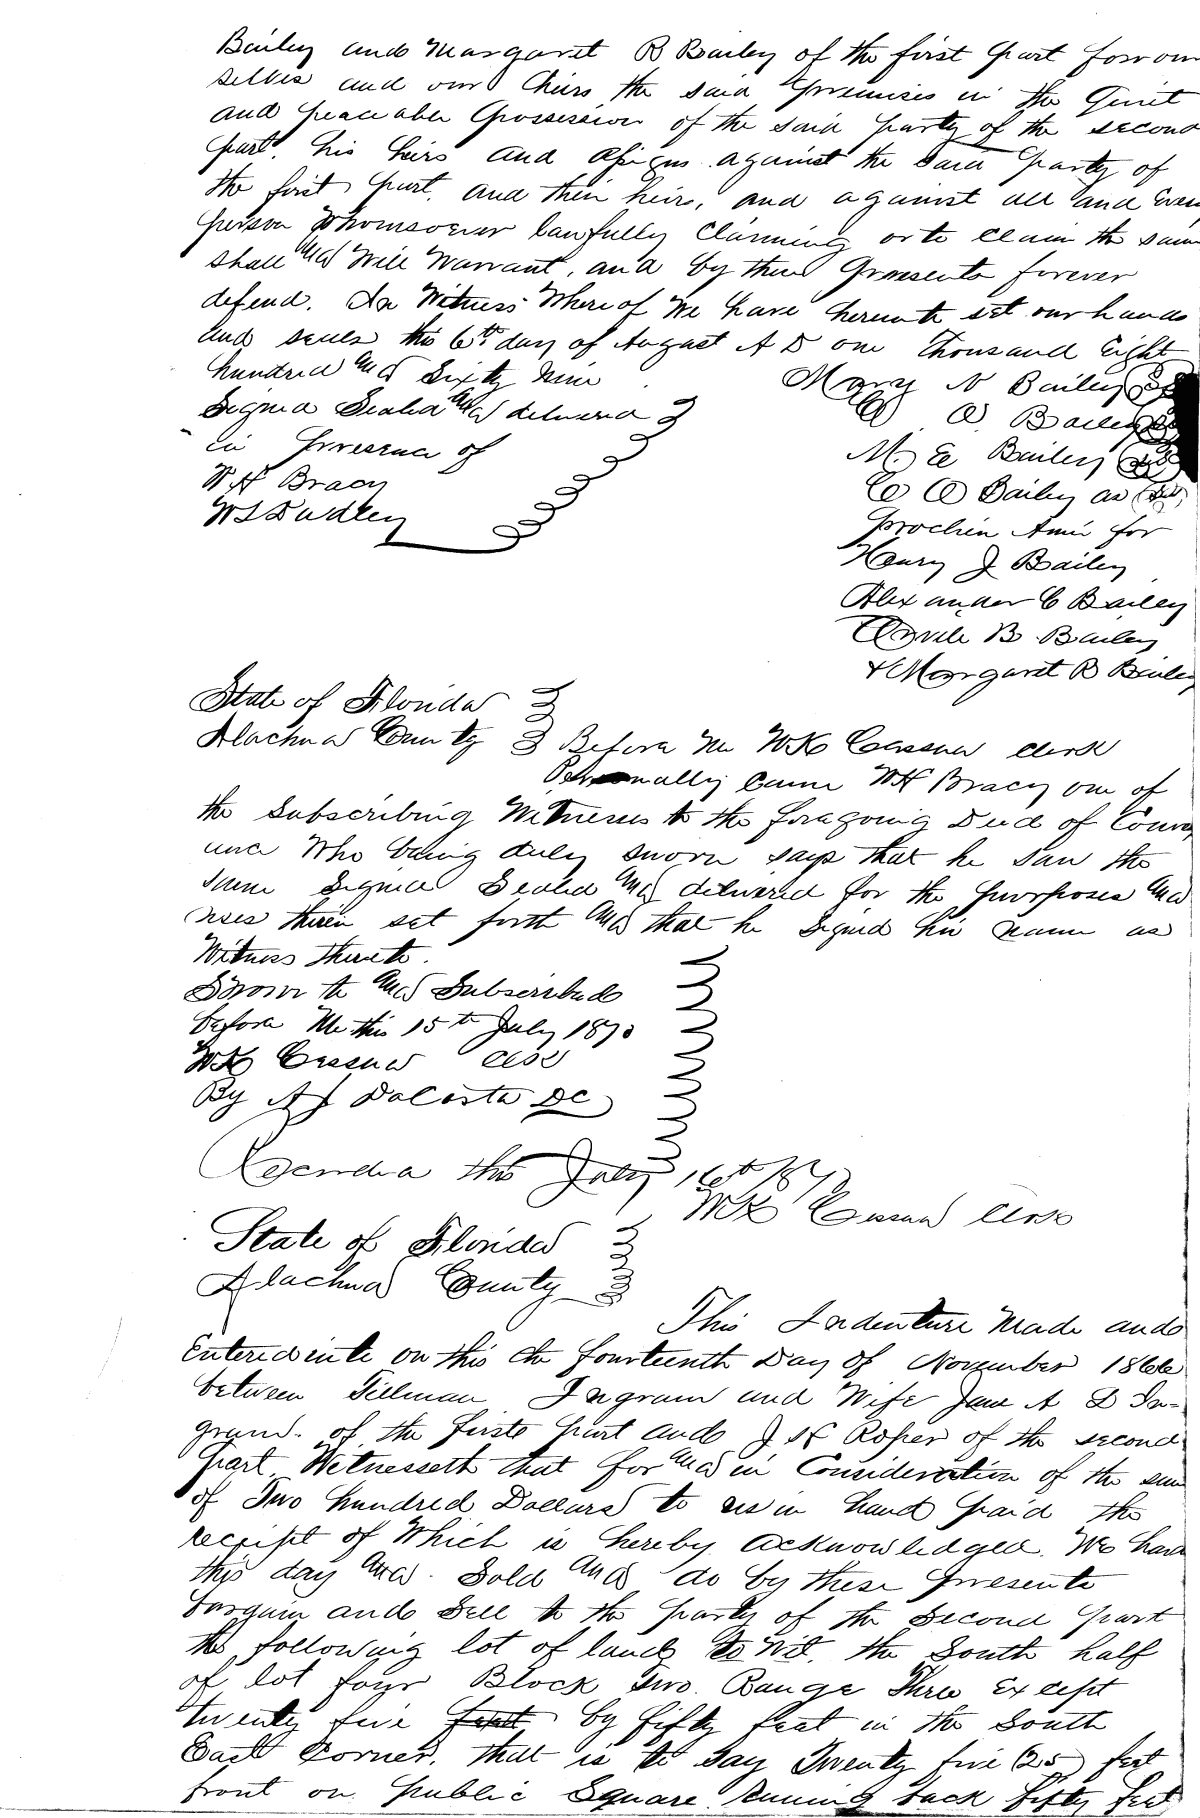 Bailey and Margaret B Bailey of the first part for our
selves and our heirs the said premises in the Quiet
and peaceable possession of the said party of the second
part, his heirs and assigns against the said party of
the first part, and their heirs, and against all and every
person Whomsoever lawfully claiming or to claim the same
shall and Will Warrant, and by these presents forever
defend. In Witness Whereof We have hereunto set our hands
and seals the 6th day of August A D one thousand Eight
hundred and Sixty Nine
Signed Sealed and delivered
in presence of
W H Bracy
W S Dudley
Mary N Bailey
C A Bailey
M E Bailey
C A Bailey as
prochin Ami for
Henry J Bailey
Alexander C Bailey
B Bailey
& Margaret B Bailey
State of Florida
Alachua County Before Me WK Cessna clerk
Personally came WH Bracy one of
the Subscribing Witnesses to the foregoing Deed of Convey
ance Who being duly sworn says that he saw the
same Signed Sealed and delivered for the purposes and
uses therein set forth and that he Signed his name as
Witness thereto.
Sworn to and Subscribed
before Me this 15th July 1870
WK Cessna Clerk
By A J DaCosta DC
Recorded this July 16th 187
WK Cessna Clerk
State of Florida
Alachua County
This Indenture Made and
Entered into on this the fourteenth Day of November 1866
between Tillman Ingram and Wife Jane A D In-
gram. of the firste part and J H Roper of the second
part Witnesseth that for and in Consideration of the sum
of Two hundred Dollars to us in hand paid the
receipt of Which is hereby acknowledged. We have
this day and. Sold and do by these presents
bargain and Sell to the party of the Second part
the following lot of land to Wit, the South half
of lot four Block Two. Range Three Except
twenty five feet by fifty feet in the South
East Corner, that is to say Twenty five (25) feet
front on public Square runing back fifty feet